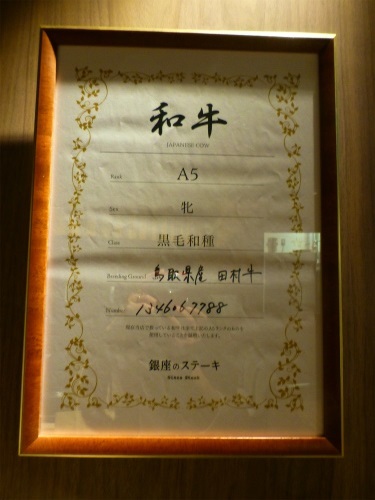 和牛
JAPANESE COW
Rank A5
Sex 牝
Class 黒毛和種
Breeding Ground 鳥取県産 田村牛
Number
銀座のステーキ
Ginza Steak